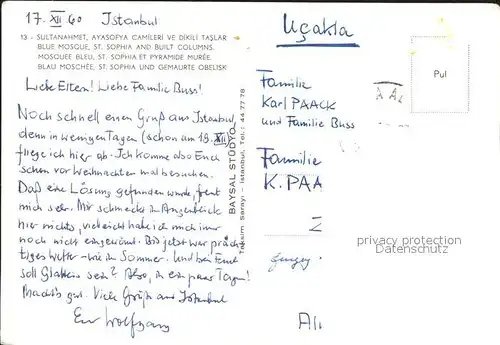 17. XII 60 Istanbul
13 - SULTANAHMET, AYASOFYA CAMİLERİ VE DİKİLİ TAŞLAR
BLUE MOSQUE, ST. SOPHIA AND BUILT COLUMNS.
MOSQUEE BLEU, ST. SOPHIA ET PYRAMIDE MURÉE.
BLAU MOSCHÉE, ST. SOPHIA UND GEMAURTE OBELISK
Liebe Eltern! Liebe Familie Buss!
Noch schnell einen Gruß aus Istanbul,
denn in wenigen Tagen (schon am 18. XII)
fliege ich hier ab. Ich komme also Euch
schon vor Weihnachten mal besuchen.
Daß eine Lösung gefunden wurde, freut
mich sehr. Mir schmeckt im Augenblick
hier nichts, vielleicht habe ich mich immer
noch nicht eingewöhnt. Bis jetzt war präch-
tiges Wetter - wie im Sommer. Und bei Euch
soll Glatteis sein? Also, in ein paar Tagen!
Macht's gut. Viele Grüße aus Istanbul
Euer Wolfgang
BAYSAL STÜDYO
Taksim Sarayı - Istanbul, Tel: 44 77 78
Uçakla
Pul
Familie
Karl PAACK
und Familie Buss
Familie
K. PAA
privacy protection
Datenschutz